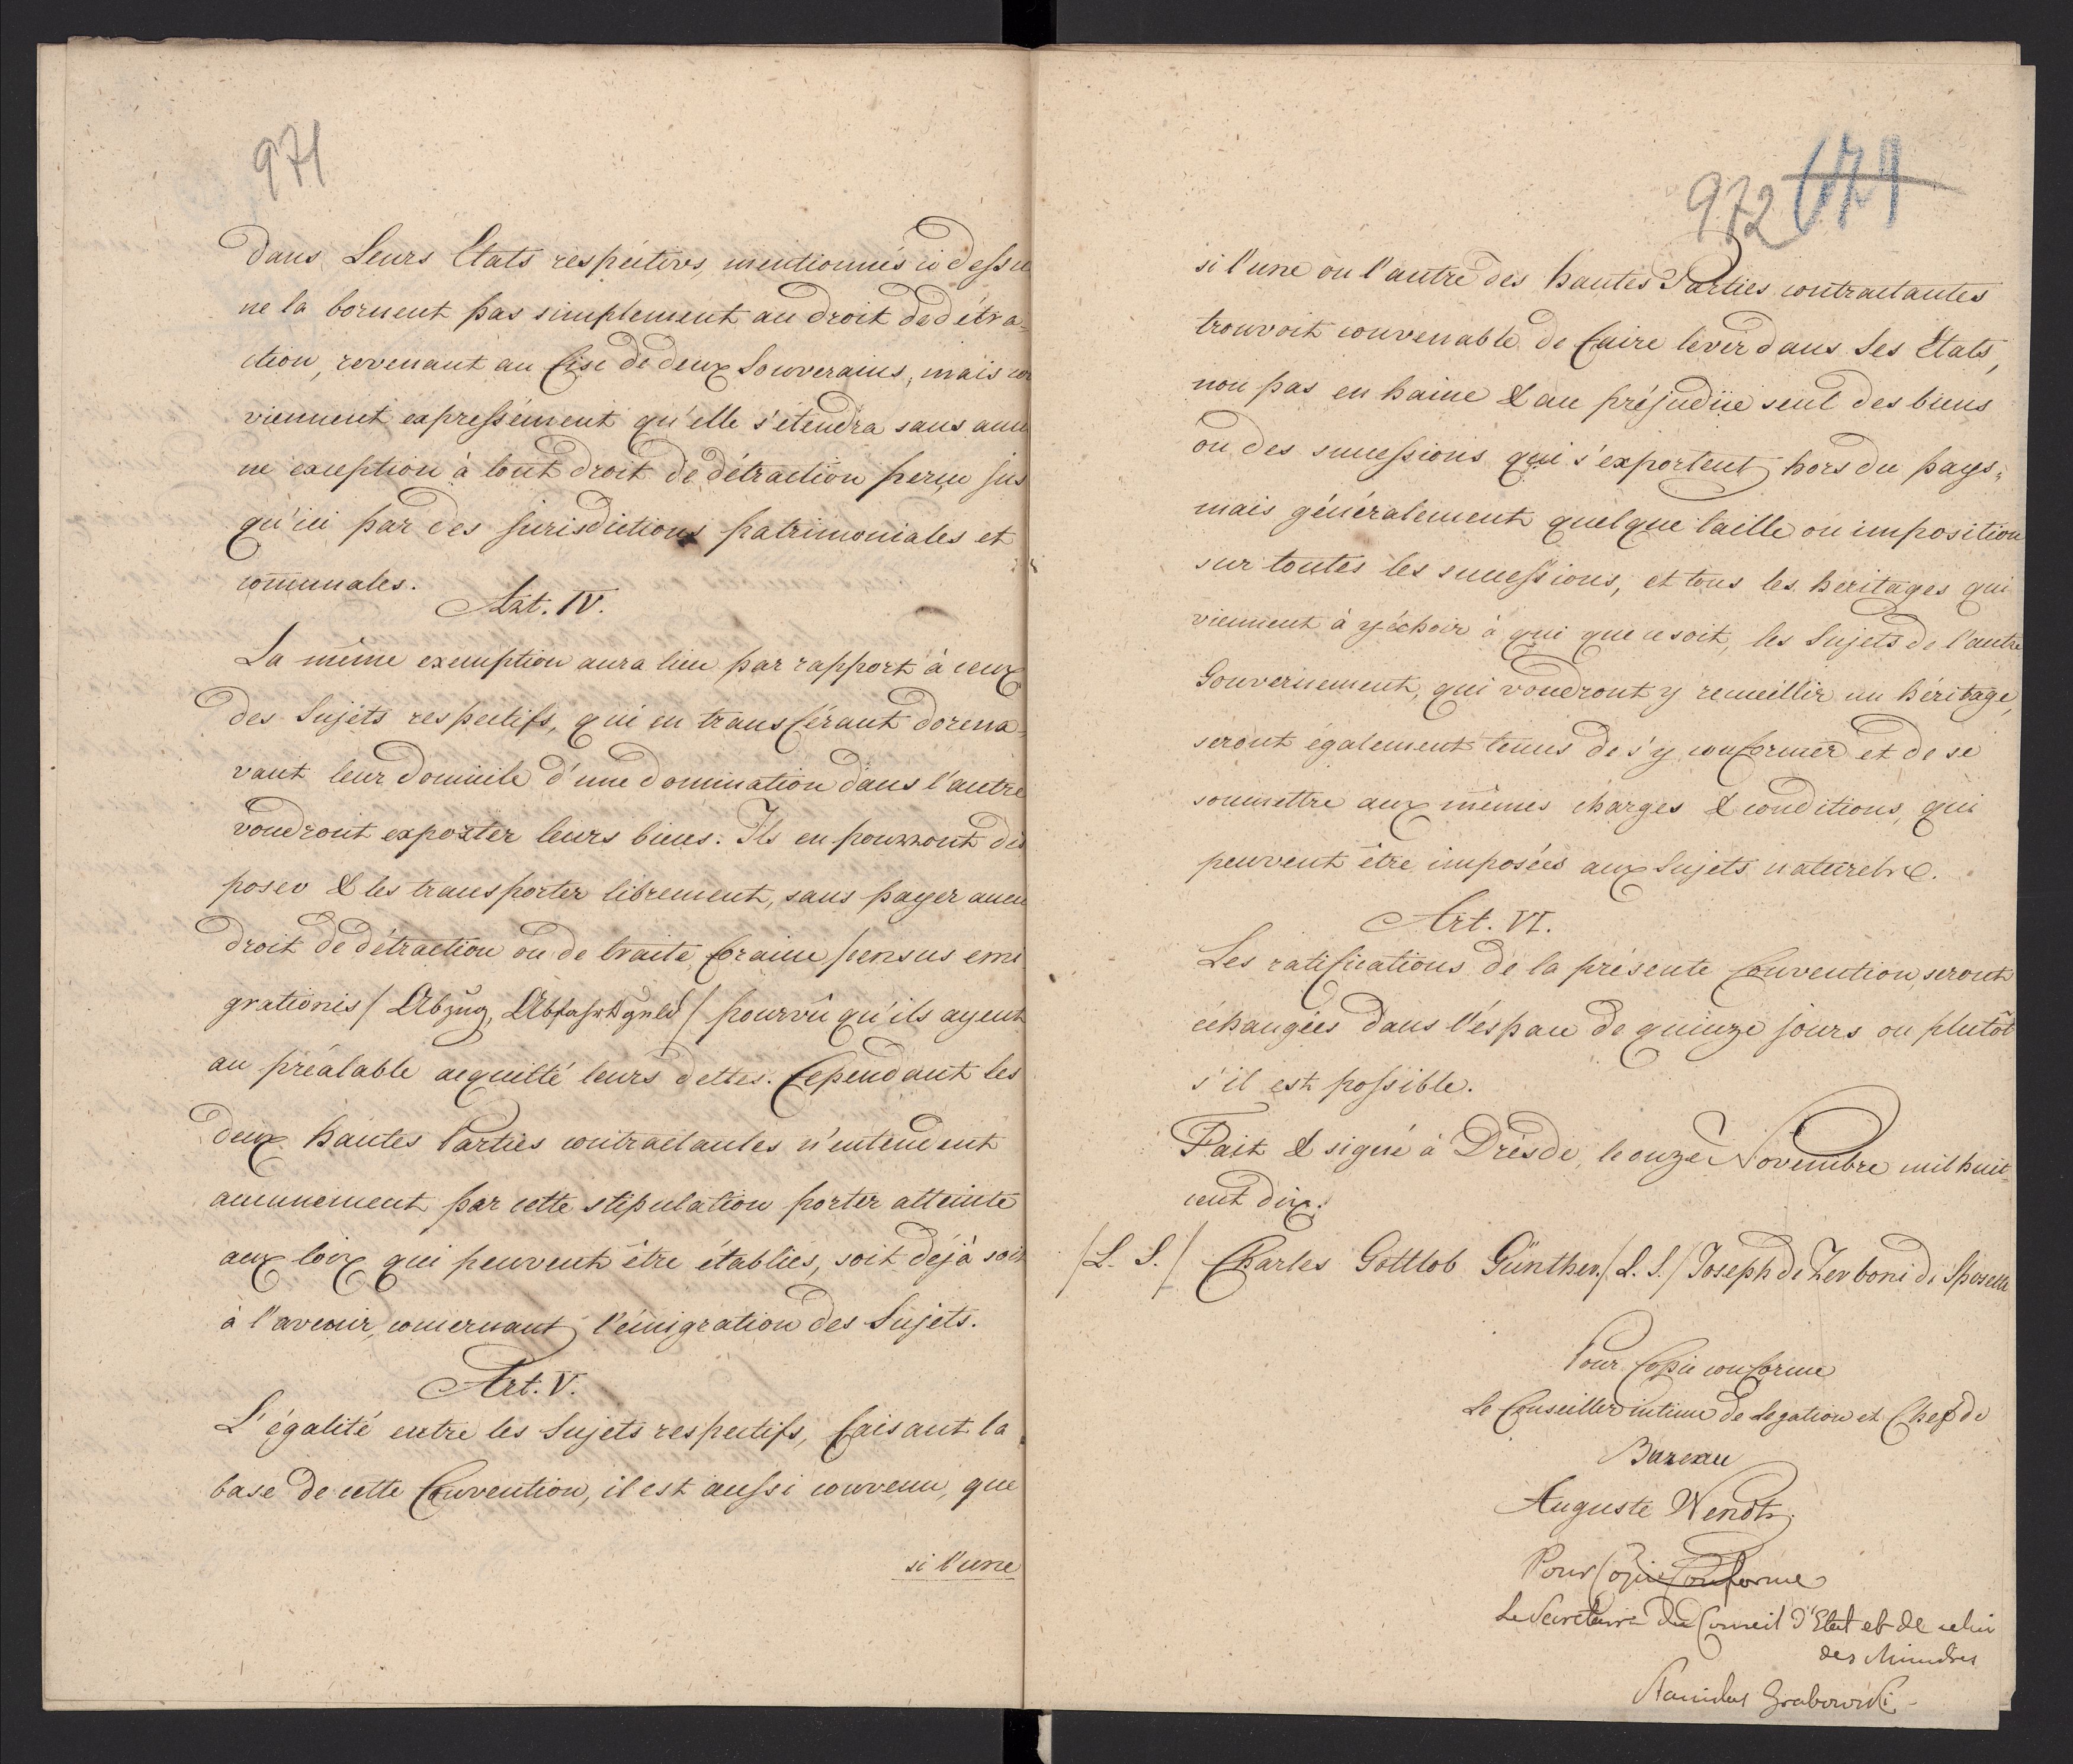 971
dans Leurs Etats respectives, mentionnés ci dessu
ne la bornent pas simplement au droit de détra-
ction, revenant au fisc de deux Souverains, mais con
viennent expressément qu'elle s'étendra sans aucu
ne exception à tout droit de détraction perçu jus
qu'ici par des jurisdictions patrimoniales et
comunales.
Art. IV.
La même exemption aura lieu par rapport à ceux
des Sujets respectifs, qui en transférant dorena-
vant leur domicile d'une domination dans l'autre
voudront exporter leurs biens. Ils en pourront dis
poser & les transporter librement, sans payer aucu
droit de détraction ou de traite foraine /census emi
grationis/ Abzug, Abfahrtsgeld/ pourvû qu'ils ayent
au préalable acquitté leurs dettes. Cependant les
deux hautes Parties contractantes n'entendent
aucunement par cette stipulation porter atteinte
aux loix qui peuvent être établies, soit déjà soit
à l'avenir, concernant l'émigration des Sujets.
Art. V.
L'égalité entre les Sujets respectifs, faisant la
base de cette Convention, il est aussi convenu, que
si l'une
972 174
si l'une ou l'autre des hautes Parties contractantes
trouvoit convenable de faire lever dans Ses Etats,
non pas en haine & au préjudice seul des biens
ou des successions qui s'exportent hors du pays;
mais généralement quelque taille ou imposition
sur toutes les successions, et tous les heritages qui
viennent à y échoir à qui que ce soit, les Sujets de l'autre
Gouvernement, qui voudront y recueillir un héritage,
seront également tenus de s'y conformer et de se
soumettre aux mêmes charges & conditions, qui
peuvent être imposées aux Sujets naturels.
Art. VI.
Les ratifications de la présente Convention, seront
échangées dans l'éspace de quinze jours ou plutôt
s'il est possible.
Fait & signé à Drésde, le onze Novembre mil huit
cent dix.
/L. S./ Charles Gottlob Günther. /L. S./ Joseph de Zerboni di Sposetti
Pour Copie conforme
Le Conseiller intime de Legation et Chef de
Bureau
Auguste Wendt
Pour Copie Conforme
Le Secretaire du Conseil d'Etat et de celui
des Ministres
Stanislas Grabowski